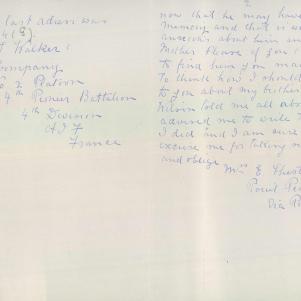 last adress was
4(8).
J Walker
Company
No 2 Platoon
4th Pioneer Battalion
4th Division
A I F
France
2
now that he may have
memory and that is w
anxious about him an
Mother Please if you c
to find him you ma
To think how I should
to you about my brother
told me all abo
advised me to write T
I did and I am sure
excuse me for taking
and oblige
Mrs E
Point Pe
Via P